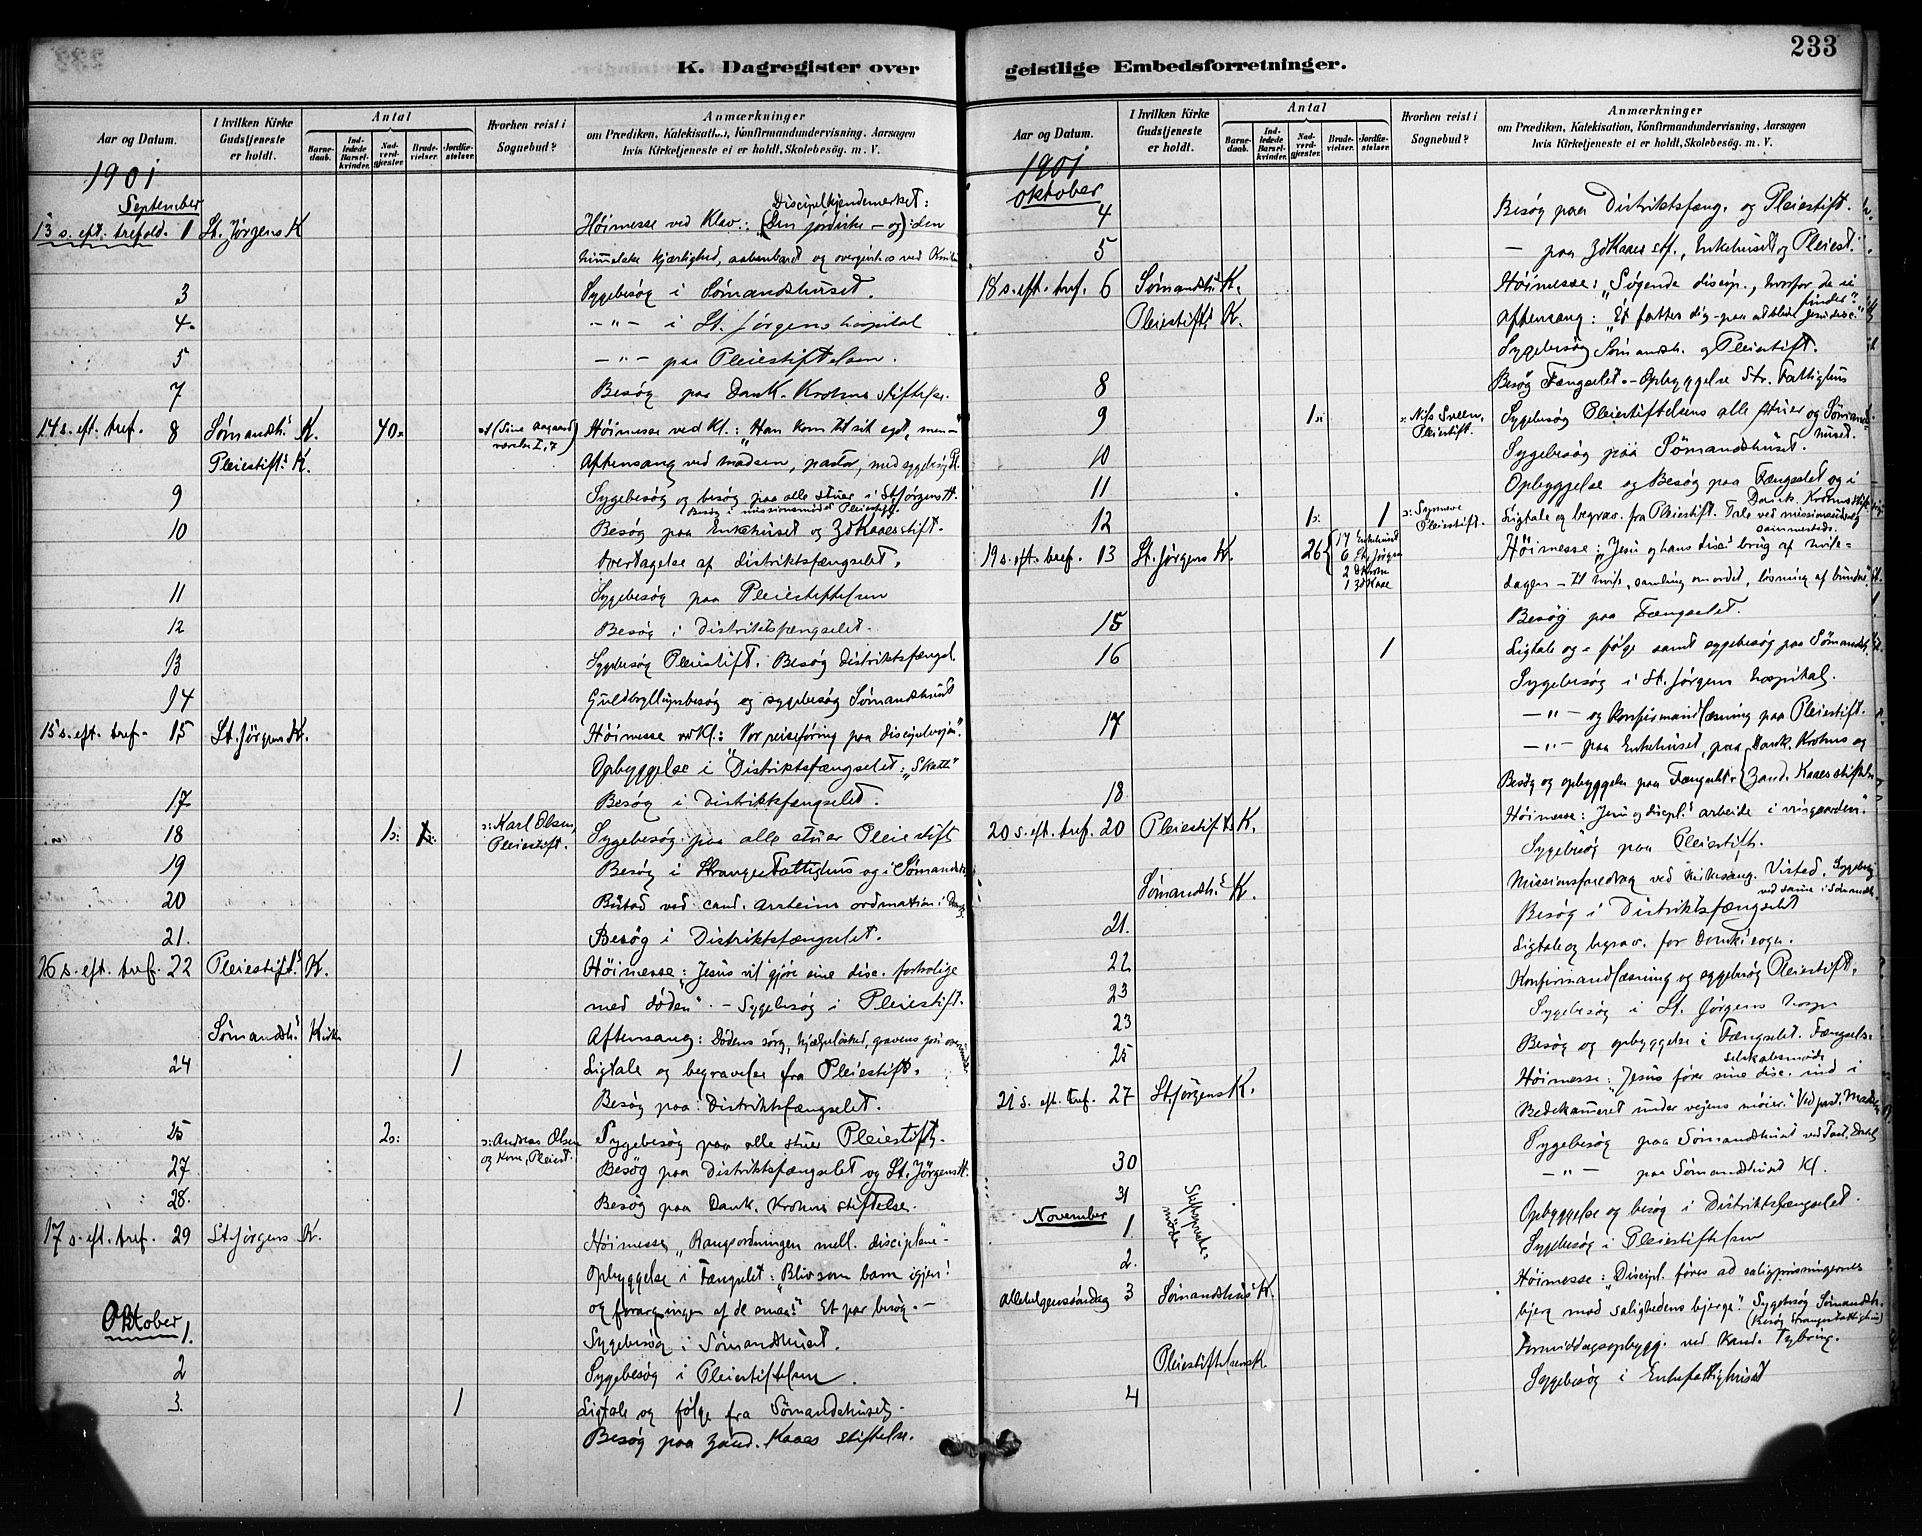 233
K. Dagregister over geistlige Embedsforretninger.
Aar og Datum.
I hvilken Kirke Gudstjeneste er holdt.
Antal
Barnedaab.
Indledede Barselkvinder.
Nadverdgjester.
Brudevielser.
Jordfæstelser.
Hvorhen reist i Sognebud?
Anmærkninger
om Prædiken, Katekisation, Konfirmandundervisning, Aarsagen
hvis Kirketjeneste ei er holdt, Skolebesøg. m. V.
1901
September
Discipelkjendemerket:
13 s. eft. trefold. 1 St. Jørgens K Høimesse ved Klav.: (Den jordiske – og) den
himmelske kjærlighed, aabenbaret og
3 Sygebesøg i Sømandshuset.
4. – " – i St. Jørgens hospital
5 – " – paa Pleiestiftelsen.
7 Besøg paa Dank. Krohns stiftelse.
14 s. eft. tref. 8 Sømandsh.s K. 40 Høimesse ved Kl.: "Han kom til sit eget, men–"
Pleiestift.s K. Aftensang ved Madsen, pastor, med sygebesøg
9 Sygebesøg og besøg paa alle stuer i St Jørgens H.
Besøg i missionsmødet Pleiestift.
10 Besøg paa Enkehuset og Zd Kaaes stift.
Overtagelse af distriktsfængselet.
11 Sygebesøg paa Pleiestiftelsen
12 Besøg i Distriktsfængselet.
13 Sygebesøg Pleiestift. Besøg distriktsfængsl.
14 Guldbryllupsbesøg og sygebesøg Sømandshuset
15 s. eft. tref. 15 St. Jørgens K. Høimesse ved Kl.: "Vor reiseføring paa discipelveien".
Opbyggelse i Distriktsfængselet: "Skatte"
17 Besøg i Distriktsfængselet.
18 1 Karl Olsen, Pleiestift. Sygebesøg paa alle stuer Pleiestift
19 Besøg i Stranges Fattighus og i Sømandsh.
20 Bistod ved cand. ordination i
21. Besøg i Distriktsfængselet.
16 s. eft. tref. 22 Pleiestift.s K. Høimesse: "Jesus vil gjøre sine disc. fortrolige
med døden". – Sygebesøg i Pleiestift.
Sømandsh.s Kirke Aftensang: Dødens sorg, hjælpeløshed, gravens
24 1 Ligtale og begravelse fra Pleiestift.
Besøg paa Distriktsfængselet.
25 2 Andreas Olsen og Kone, Pleiest. Sygebesøg paa alle stuer Pleiestift.
27 Besøg paa Distriktsfængselet og St. Jørgens H.
28. Besøg paa Dank. Krohns stiftelse.
17 s. eft. tref. 29 St Jørgens K. Høimesse "Rangsordningen mell. disciplene"
Opbyggelse i Fængselet: "Bliv som barn igjen!
og forargingen af de smaa!" Et par besøg. –
Oktober
1. Sygebesøg i Sømandshuset.
2 Sygebesøg i Pleiestiftelsen.
3. 1 Ligtale og følge fra Sømandshuset.
Besøg paa Zand. Kaaes Stiftelse.
Aar og Datum.
I hvilken Kirke Gudstjeneste er holdt.
Antal
Barnedaab.
Indledede Barselkvinder.
Nadverdgjester.
Brudevielser.
Jordfæstelser.
Hvorhen reist i Sognebud?
Anmærkninger
om Prædiken, Katekisation, Konfirmandundervisning, Aarsagen
hvis Kirketjeneste ei er holdt, Skolebesøg. m. V.
1901
Oktober
4 Besøg paa Distriktsfæng. og Pleiestift.
5 – paa Zd Kaaes st., Enkehuset og Pleiest.
18 s. eft. tref. 6 Sømandsh.s K. Høimesse: "Søgende discip., hvorfor de ei finder".
Pleiestift.s K. Aftensang: "Et fattes dig – paa at blive Jesu disc."
Sygebesøg Sømandsh. og Pleiestift.
8 Besøg Fængselet. – Opbyggelse Str. Fattighus
9 1 Nils Sveen, Pleiestift. Sygebesøg Pleiestiftelsens alle stuer og Sømandshuset.
10 Sygebesøg paa Sømandshuset.
11 Opbyggelse og Besøg paa Fængselet og i Dank. Krohns stift.
12 1 1 Pleiestift. Ligtale og begrav. fra Pleiestift. Tale ved missionsudvalg
19 s. eft. tref. 13 St. Jørgens K. 26 { 17 Enkehuset 6 St Jørgen 2 dKrohn 1 ZdKaae Høimesse: "Jesu og hans disc.s brug af hvile-
dagen – til hvile, samling om ordet, løsning af bundne"
15 Besøg paa Fængselet.
16 1 Ligtale og – følge samt sygebesøg paa Sømandsh.
Sygebesøg i St. Jørgens hospital.
17 – " – og Konfirmandlæsning paa Pleiestift.
– " – paa Enkehuset, paa Dank. Krohns og
18 Besøg og opbyggelse paa Fængselet. Zand. Kaaes stiftelse
20 s. eft. tref. 20 Pleiestift.s K. Høimesse: "Jesu og discipl.s arbeide i vingaarden".
Sygebesøg paa Pleiestift.
Sømandsh.s K. Missionsforedrag ved Visted. Sygebesøg
ved samme i Sømandsh.
21. Besøg i Distriktsfængselet
22 Ligtale og begrav. for Domkirkesogn.
23 Konfirmandlæsning og sygebesøg Pleiestift.
23 Sygebesøg i St. Jørgens hosp.
25 Besøg og opbyggelse i Fængselet. Fængsels-
selskabsmøde
21 s. eft. tref. 27 St Jørgens K. Høimesse: "Jesus fører sine disc. ind i
Bedekameret under veiens møier." Ved past. Madsen
Sygebesøg paa Sømandshuset ved
30 – " – paa Sømandshuset Kl.
31 Opbyggelse og besøg i Distriktsfængselet.
November
1. Sygebesøg i Pleiestiftelsen
2.
Allehelgenssøndag 3 Sømandshus K. Høimesse: "Discipl. føres ad saligprisningernes
bjerg mod salighedens bjerge". Sygebesøg Sømandsh.
(Besøg Stranges fattighus)
Pleiestiftelsens K. Formiddagsopbygg. ved Kand. Tybring.
4 Sygebesøg i Enkefattighuset